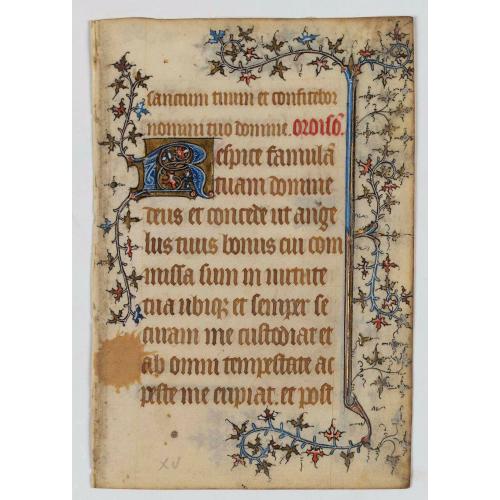 sanctum tuum et confitebor
nomini tuo domine. oroiso̅.
Respice famula̅
tuam domine
deus et concede ut ange
lus tuus bonus cui com
missa sum in uirtute
tua ubiqꝫ et semper se
curam me custodiat et
ab omni tempestate ac
peste me eripiat. et post
XV